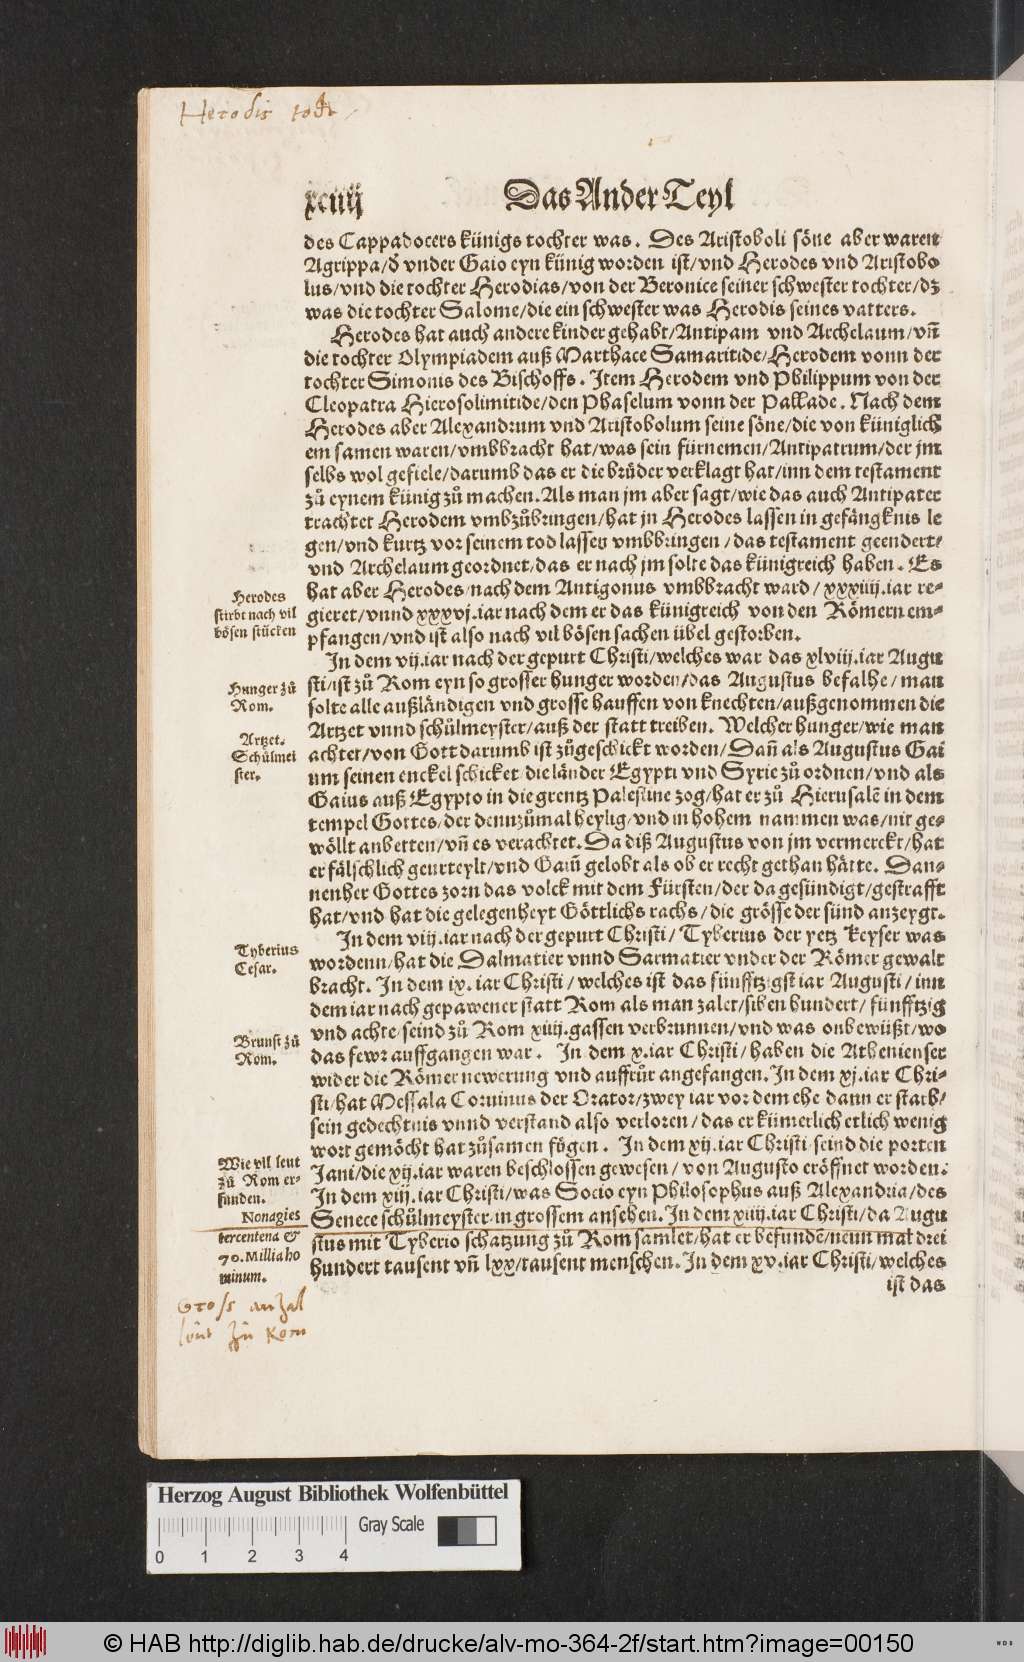 Herodis todt
xciiij Das Ander Teyl
des Cappadocers künigs tochter was. Des Aristoboli söne aber waren
Agrippa/d vnder Gaio eyn künig worden ist/vnd Herodes vnd Aristobo
lus/vnd die tochter Herodias/von der Beronice seiner schwester tochter/dz
was die tochter Salome/die ein schwester was Herodis seines vatters.
Herodes hat auch andere kinder gehabt/Antipam vnd Archelaum/vñ
die tochter Olympiadem auß Marthace Samaritide/Herodem vonn der
tochter Simonis des Bischoffs. Item Herodem vnd Philippum von der
Cleopatra Hierosolimitide/den Phaselum vonn der Pallade. Nach dem
Herodes aber Alexandrum vnd Aristobolum seine söne/die von küniglich
em samen waren/vmbbracht hat/was sein fürnemen/Antipatrum/der jm
selbs wol gefiele/darumb das er die brüder verklagt hat/inn dem testament
zů eynem künig zů machen. Als man jm aber sagt/wie das auch Antipater
trachtet Herodem vmbzůbringen/hat jn Herodes lassen in gefängknis le
gen/vnd kurtz vor seinem tod lassen vmbbringen/das testament geendert/
vnd Archelaum geordnet/das er nach jm solte das künigreich haben. Es
hat aber Herodes/nach dem Antigonus vmbbracht ward/xxxiiij.iar re-
gieret/vnnd xxxvj.iar nach dem er das künigreich von den Römern em-
pfangen/vnd ist also nach vil bösen sachen übel gestorben.
Herodes
stirbt nach vil
bösen stücken
In dem vij.iar nach der gepurt Christi/welches war das xlviij.iar Augu
sti/ist zů Rom eyn so grosser hunger worden/das Augustus befalhe/man
solte alle außländigen vnd grosse hauffen von knechten/außgenommen die
Artzet vnnd schůlmeyster/auß der statt treiben. Welcher hunger/wie man
achtet/von Gott darumb ist zůgeschickt worden/Dañ als Augustus Gai
um seinen enckel schicket/die länder Egypti vnd Syrie zů ordnen/vnd als
Gaius auß Egypto in die grentz Palestine zog/hat er zů Hierusalē in dem
tempel Gottes/der dennzůmal heylig/vnd in hohem nammen was/nit ge-
wöllt anbetten/vñ es verachtet. Da diß Augustus von jm vermerckt/hat
er fälschlich geurteylt/vnd Gaiū gelobt als ob er recht gethan hätte. Dan-
nenher Gottes zorn das volck mit dem Fürsten/der da gesündigt/gestrafft
hat/vnd hat die gelegenheyt Göttlichs rachs/die grösse der sünd anzeygt.
Hunger zů
Rom.
Artzet.
Schůlmei
ster.
In dem viij.iar nach der gepurt Christi/Tyberius der yetz keyser was
wordenn/hat die Dalmatier vnnd Sarmatier vnder der Römer gewalt
bracht. In dem ix.iar Christi/welches ist das fünfftzigst iar Augusti/inn
dem iar nach gepawener statt Rom als man zalet/siben hundert/fünfftzig
vnd achte/seind zů Rom xiiij.gassen verbrunnen/vnd was onbewüßt/wo
das fewr auffgangen war. In dem x.iar Christi/haben die Athenienser
wider die Römer newerung vnd auffrůr angefangen. In dem xj.iar Chri-
sti/hat Messala Coruinus der Orator/zwey iar vor dem ehe dann er starb/
sein gedechtnis vnnd verstand also verloren/das er kümerlich etlich wenig
wort gemöcht hat zůsamen fügen. In dem xij.iar Christi seind die porten
Jani/die xij.iar waren beschlossen gewesen/von Augusto eröffnet worden.
In dem xiij.iar Christi/was Socio eyn Philosophus auß Alexandria/des
Senece schůlmeyster in grossem ansehen. In dem xiiij.iar Christi/da Augu
stus mit Tyberio schatzung zů Rom samlet/hat er befundē/neun mal drei
hundert tausent vñ lxx/tausent menschen. In dem xv.iar Christi/welches
ist das
Tyberius
Cesar.
Brunst zů
Rom.
Wie vil leut
zů Rom er-
funden.
Nonagies
tercentena &
70. Millia ho
minum.
Gross anzal
leut zu Rom
Herzog August Bibliothek Wolfenbüttel
Gray Scale
0 1 2 3 4
© HAB http://diglib.hab.de/drucke/alv-mo-364-2f/start.htm?image=00150